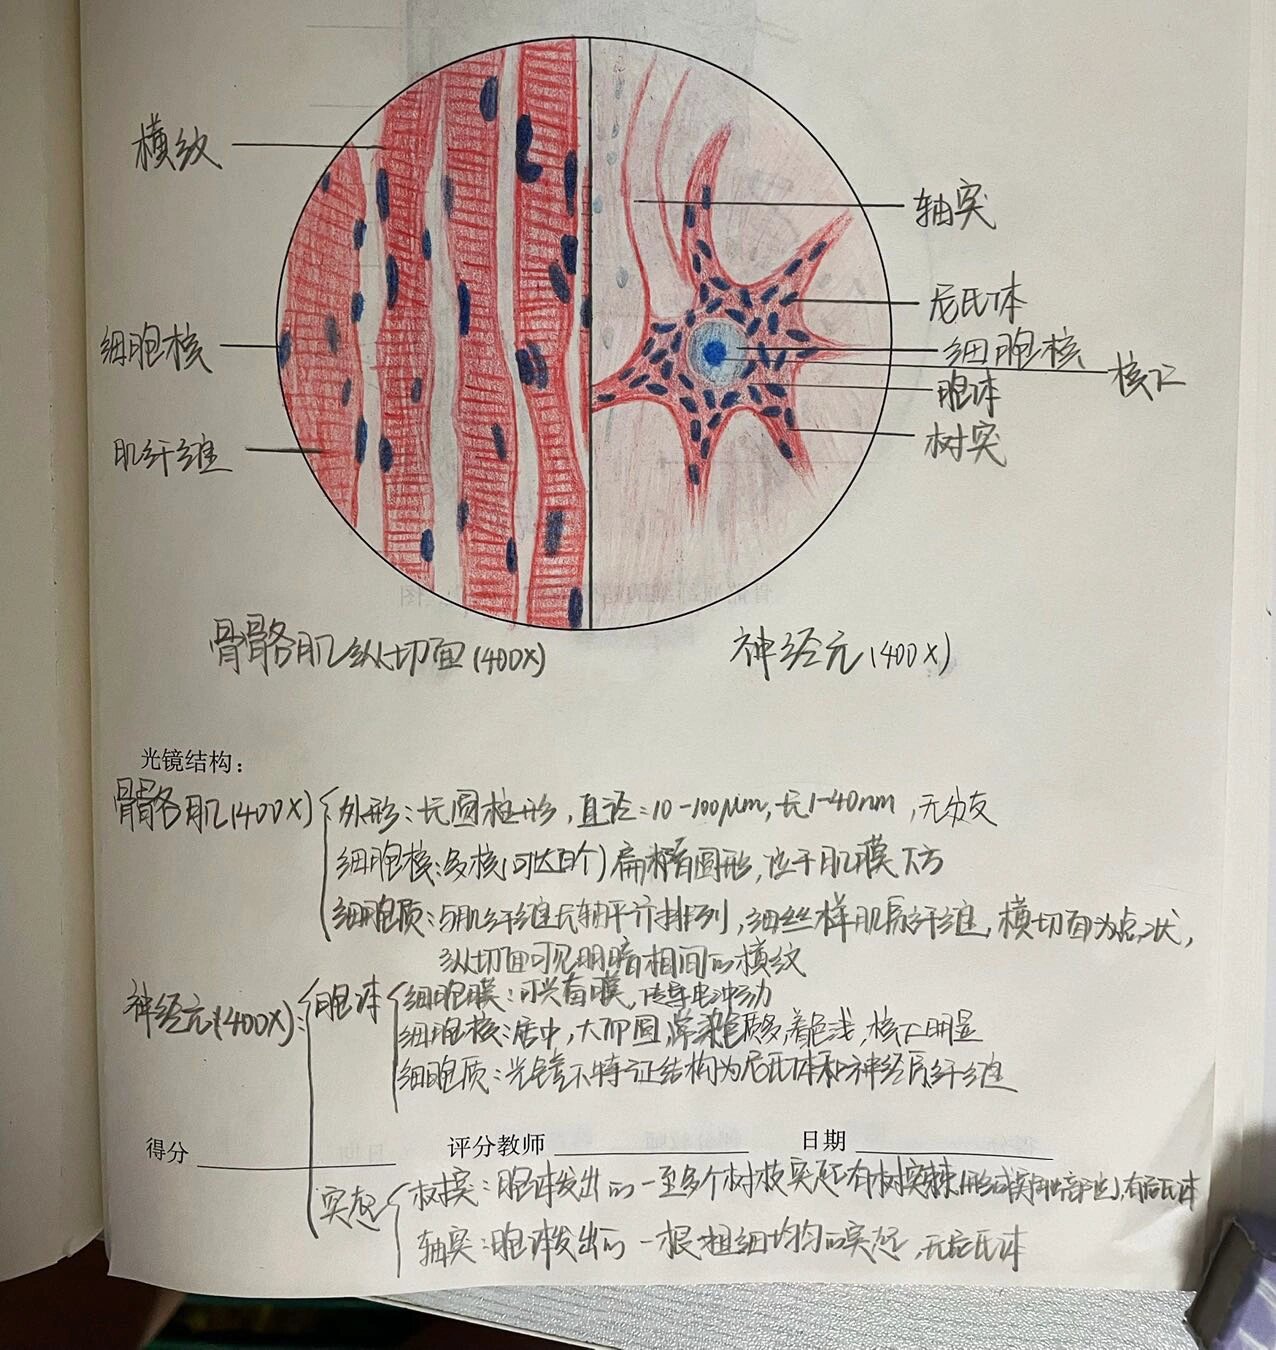 横纹
细胞核
肌纤维
轴突
尼氏体
细胞核
核仁
胞体
树突
骨骼肌纵切面(400X)
神经元(400X)
光镜结构：
骨骼肌(400X)
外形：长圆柱形，直径：10-100μm，长1-40nm，无分支
细胞核：多核(可达百个)扁椭圆形，位于肌膜下方
细胞质：与肌纤维长轴平行排列，细丝样肌原纤维，横切面为点状，
纵切面可见明暗相间的横纹
神经元(400X)：
胞体
细胞膜：可兴奋膜，传导电冲动
细胞核：居中，大而圆，常染色质多，着色浅，核仁明显
细胞质：光镜下特征结构为尼氏体和神经原纤维
得分 评分教师 日期
突起
树突：胞体发出的一至多个树枝突起有树突棘(形成突触部位)，有尼氏体
轴突：胞体发出的一根粗细均匀的突起，无尼氏体